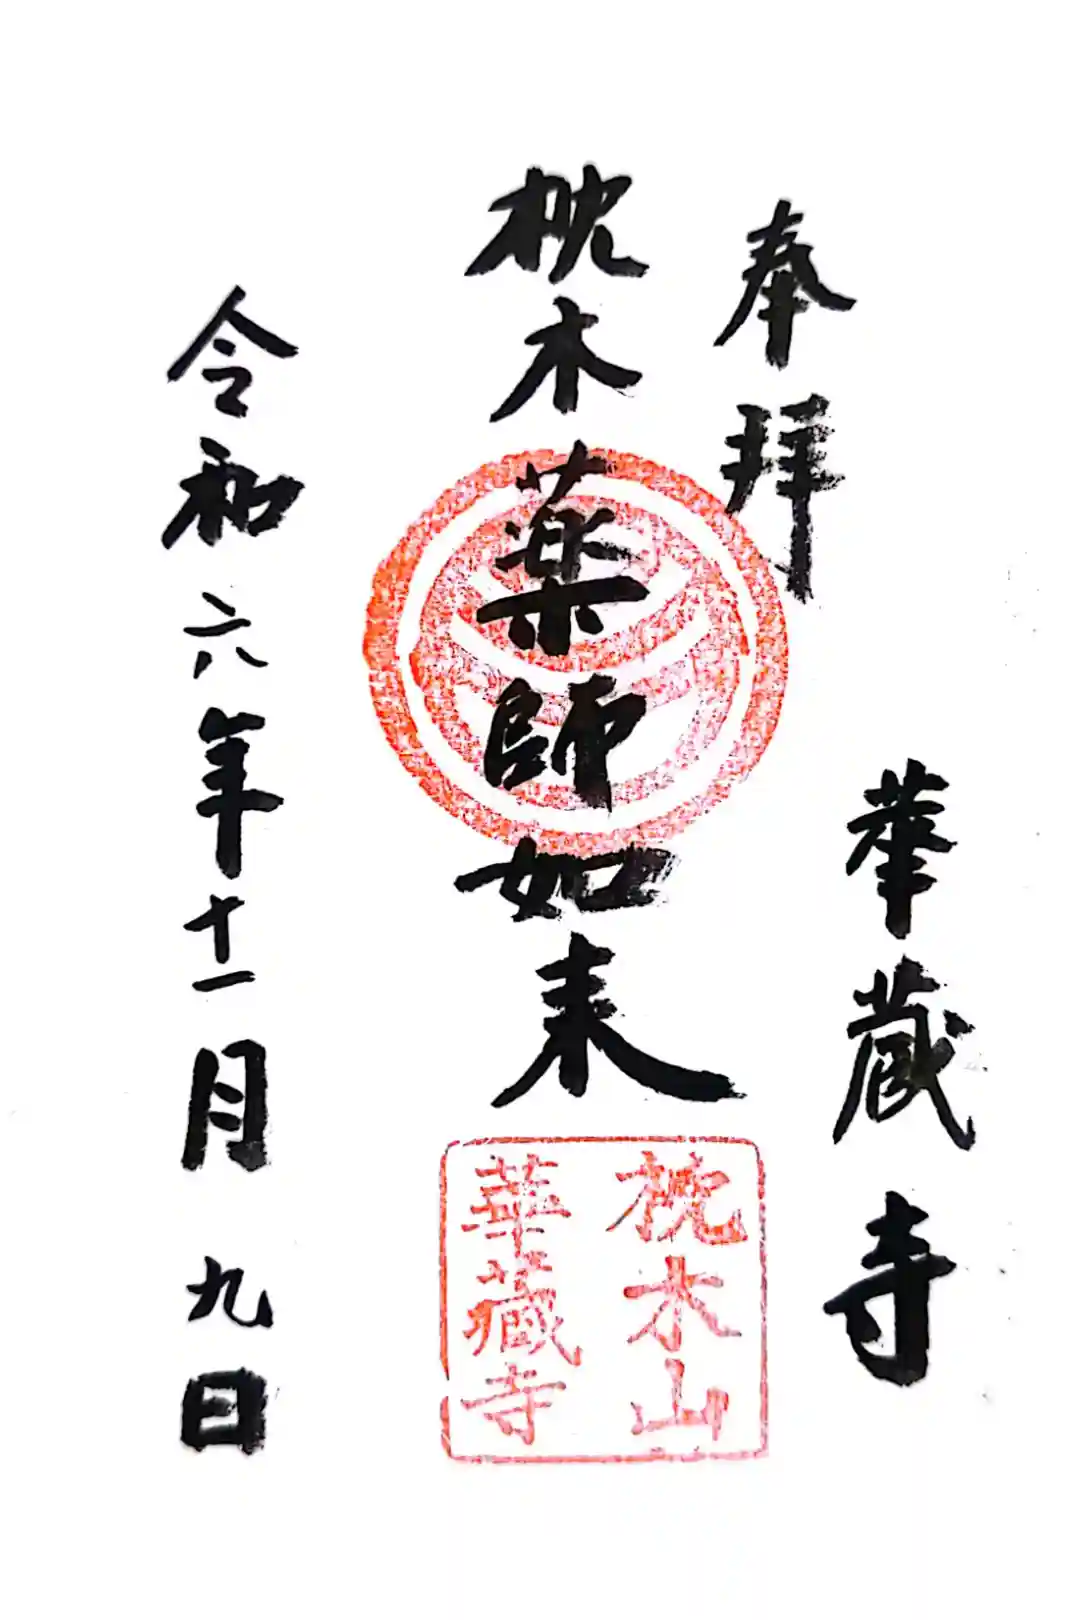 奉拝
華蔵寺
枕木薬師如来
枕木山
華藏寺
令和六年十一月九日